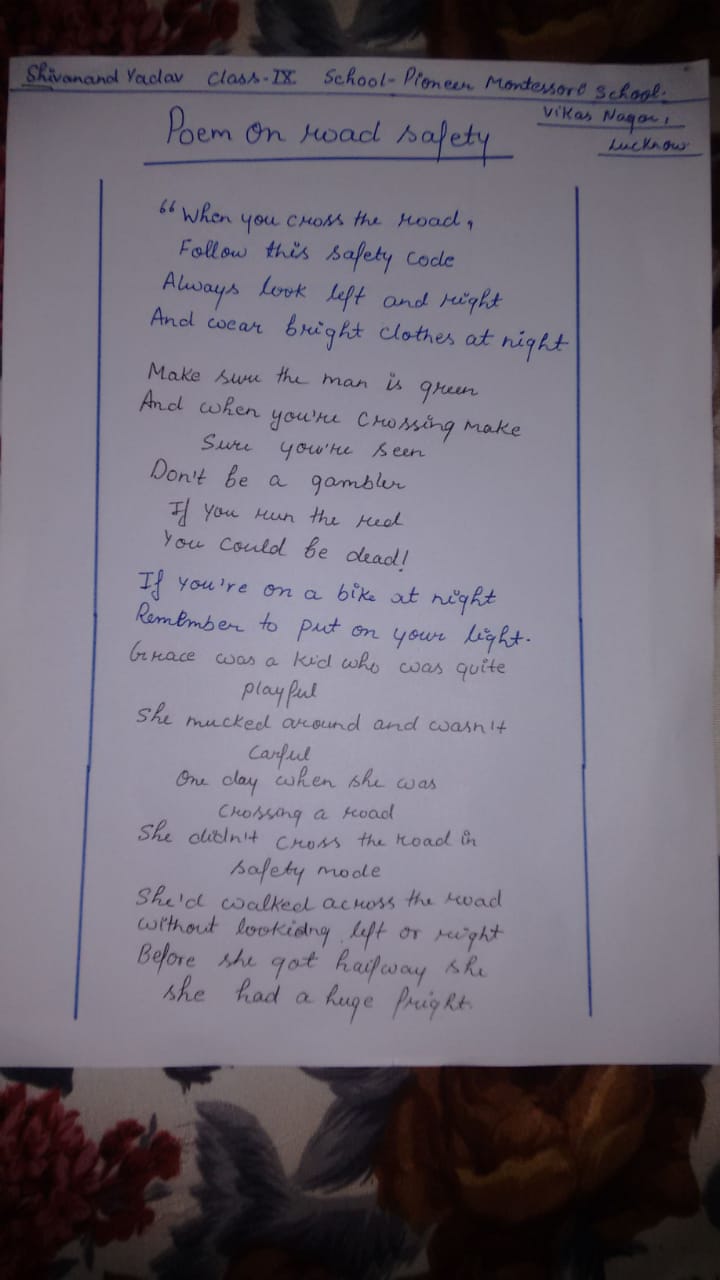 Shivanand Yadav Class-IX School- Pioneer Montessori School.
Vikas Nagar,
Lucknow
Poem On road safety
“When you cross the road,
Follow this safety code
Always look left and right
And wear bright clothes at night
Make sure the man is green
And when you're crossing make
Sure you're seen
Don't be a gambler
If you run the red
You could be dead!
If you're on a bike at night
Remember to put on your light.
Grace was a kid who was quite
playful
She mucked around and wasn't
Carful
One day when she was
crossing a road
She didn't cross the road in
safety mode
She'd walked across the road
without lookidng left or right
Before she got halfway she
she had a huge fright.